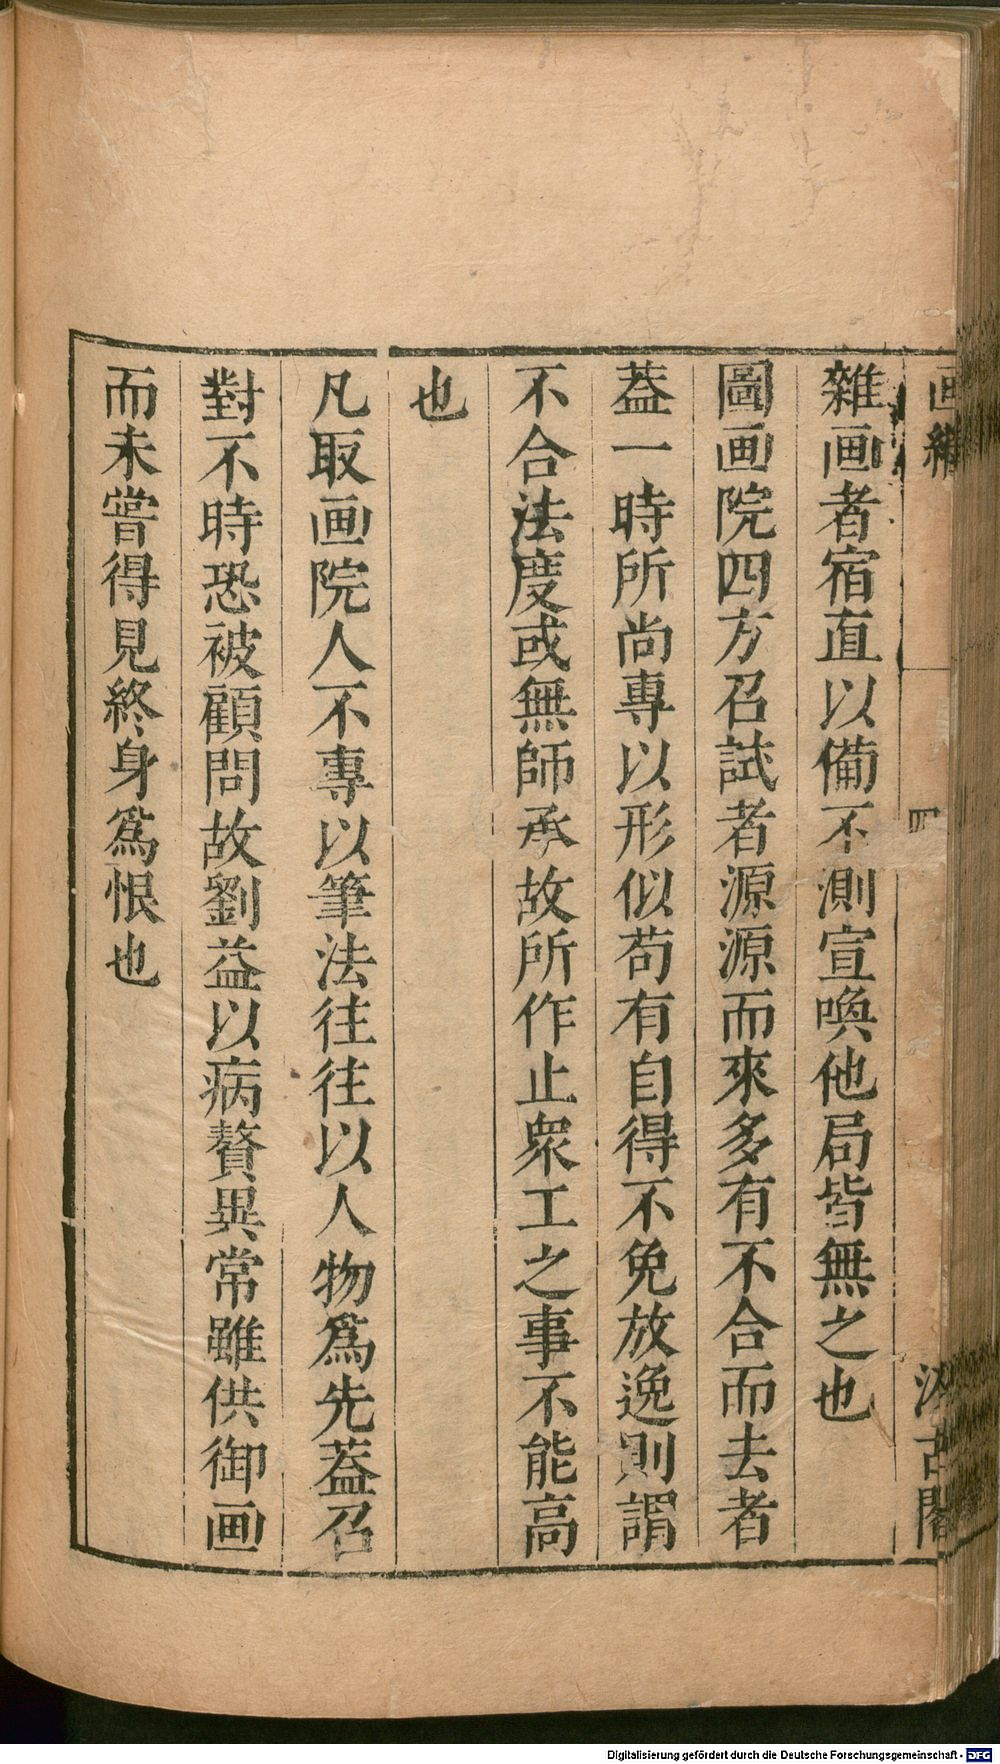 画繼 四 汲古閣
雜画者宿直以備不測宣喚他局皆無之也
圖画院四方召試者源源而來多有不合而去者
葢一時所尚專以形似苟有自得不免放逸則謂
不合法度或無師承故所作止衆工之事不能高
也
凡取画院人不專以筆法往往以人物爲先葢召
對不時恐被顧問故劉益以病贅異常雖供御画
而未嘗得見終身爲恨也
Digitalisierung gefördert durch die Deutsche Forschungsgemeinschaft - DFG